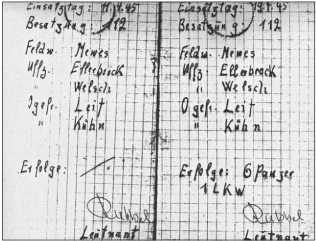 Einsatztag: 11.4.45
Besatzung: 112
Feldw. Mewes
Uffz. Ellenbrock
" Welsch
Ogefr. Leit
" Kühn
Erfolge:
Leutnant
Einsatztag: 12.4.45
Besatzung: 112
Feldw. Mewes
Uffz. Ellenbrock
" Welsch
Ogefr. Leit
" Kühn
Erfolge: 6 Panzer
1 LKW
Leutnant